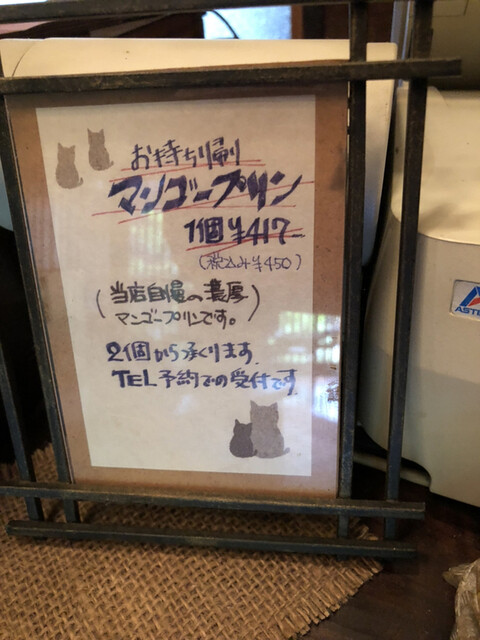 お持ち帰り
マンゴープリン
1個 ¥417-
(税込み¥450)
(当店自慢の濃厚
マンゴープリンです。)
2個から承ります.
TEL予約での受付です.
ASTE